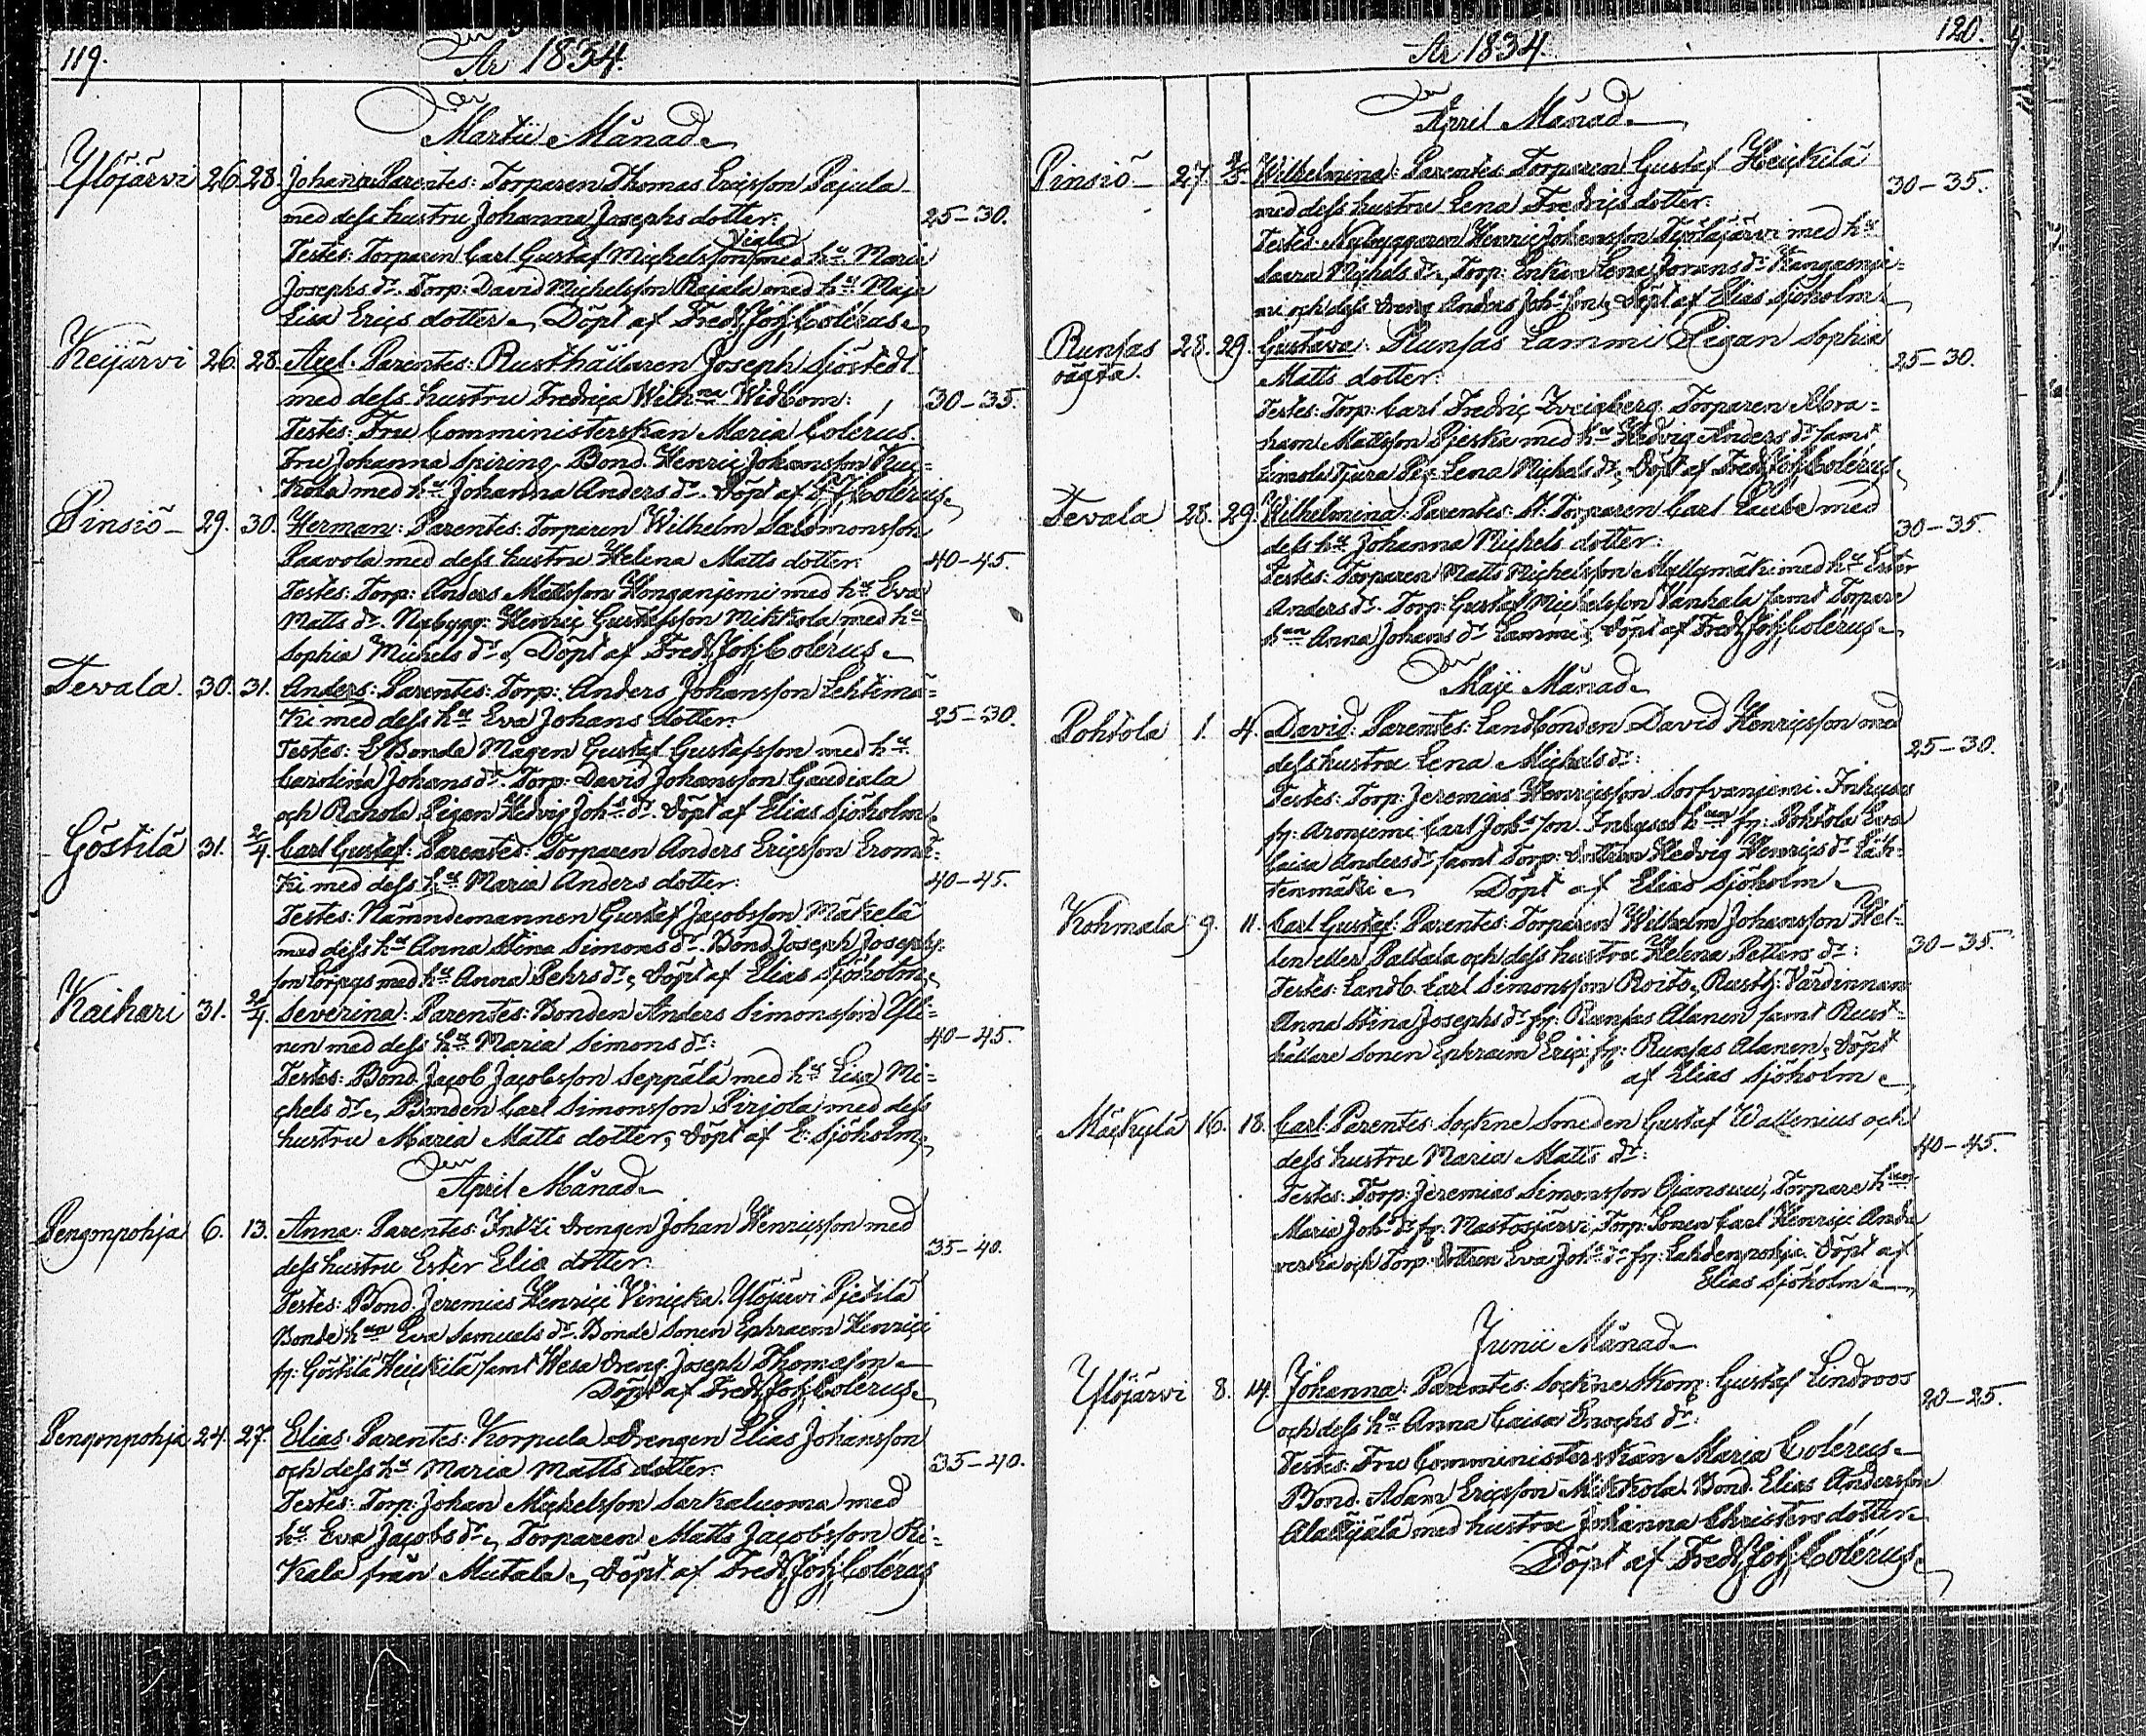 119.
År 1834.
Martii Månad
Ylöjärvi 26. 28. Johanna Parentes: Torparen Thomas Ericsson Pajula
med dess hustru Johanna Josephs dotter: 25–30.
Testes: Torparen Carl Gustaf Michelsson Viala med hu Maria
Josephs dr. Torp: David Michelsson Rajala med hu Maja
Lisa Erics dotter. Döpt af Fredr. Joh. Colérus.
Keijärvi 26. 28. Axel. Parentes: Rusthållaren Joseph Sjöstedt
med dess hustru Fredrica Wilhna Widbom: 30–35.
Testes: Fru Comministerskan Maria Colérus.
Fru Johanna Spiring, Bond. Henric Johansson Kuc=
kola med hu Johanna Anders dr. Döpt af F. J. Colérus.
Pinsiö 29. 30. Herman: Parentes: Torparen Wilhelm Salomonsson
Paavola med dess hustru Helena Matts dotter. 40–45.
Testes: Torp: Anders Mattsson Honganjemi med hu Eva
Matts dr. Nybygg: Henric Gustafsson Mikkola med hu
Sophia Michels dr. Döpt af Fredr. Joh. Colérus.
Tevala. 30. 31. Anders: Parentes: Torp: Anders Johansson Lehtimä=
ki med dess hu Eva Johans dotter. 25–30.
Testes: Bonde Mågen Gustaf Gustafsson med hu
Carolina Johans dr. Torp: David Johansson Gaudiala
och Rahola Pigan Hedvig Joh. dr. Döpt af Elias Sjöholm.
Göstilä 31. 2/4. Carl Gustaf: Parentes: Torparen Anders Ericsson Eromä=
ki med dess hu Maria Anders dotter: 40–45.
Testes: Nämndemannen Gustaf Jacobsson Mäkelä
med dess hu Anna Stina Simons dr. Bond. Joseph Josephs=
son Erpegs med hu Anna Pehrs dr. Döpt af Elias Sjöholm.
Kaihari 31. 2/4. Severina: Parentes: Bonden Anders Simonsson Yli=
nen med dess hu Maria Simons dr: 40–45.
Testes: Bond. Jacob Jacobsson Seppälä med hu Lisa Mi=
chels dr. Bonden Carl Simonsson Pirjola med dess
hustru Maria Matts dotter, döpt af E. Sjöholm.
April Månad
Pengonpohja 6. 13. Anna: Parentes: Drengen Johan Henricsson med
dess hustru Ester Elie dotter. 35–40.
Testes: Bond. Jeremias Henrici Vinicka. Ylöjärvi Pjetilä
Bonde hun Eva Samuels dr. Bonde Sonen Ephraem Henrici
fr: Göstilä Heickilä samt Wesa dreng. Joseph Thomasson
Döpt af Fredr. Joh. Colérus.
Pengonpohja 24. 27. Elias: Parentes: Korpula Drengen Elias Johansson
och dess hu Maria Matts dotter: 35–40.
Testes: Torp: Johan Michelsson Sarkaluoma med
hu Eva Jacobs dr. Torparen Matts Jacobsson Ri=
kala från Mutala. Döpt af Fredr. Joh. Colérus
120.
År 1834.
April Månad
Pinsiö 27. Wilhelmina: Parentes: Torparen Gustaf Heickilä
med dess hustru Lena Fredrics dotter: 30–35.
Testes: Nybyggaren Henric Johansson med hu
Saara Michels dr. Torp: Enkan Lena Jörans dr Kangasnje=
mi och dess dreng Anders Johsson. Döpt af Elias Sjöholm
Runsas 28. 29. Gustava: Runsas Lammi Pigan Sophia
Matts dotter: 25–30.
Testes: Torp: Carl Fredric Zveigberg. Torparen Abra=
ham Mattsson med hu Hedvig Anders dr samt
Simola Pig. Lena Michels dr. Döpt af Fredr. Joh. Colérus
Tevala 28. 29. Wilhelmina: Parentes: Torparen Carl Laube med
dess hu Johanna Michels dotter: 30–35.
Testes: Torparen Matts Michelsson Myllymäki med hu Ester
Anders dr. Torp: Gustaf Michelsson Vanhala samt Torpare
hun Anna Johans dr Lammi. Döpt af Fredr. Joh. Colérus
Maji Månad
Pohtola 1. 4. David: Parentes: Landbonden David Henricsson med
dess hustru Lena Michels dr: 25–30.
Testes: Torp: Jeremias Henricsson Sorfvanjemi. Inhyses
fr: Aronjemi Carl Johsson. Inhyses hun fr: Pohtola Eva
Caisa Anders dr samt Torp: dottren Hedvig Henrics dr Läh=
tenmäki. Döpt af Elias Sjöholm
Kohmala 9. 11. Carl Gustaf: Parentes: Torparen Wilhelm Johansson Hel=
len eller Paltala och dess hustru Helena Petters dr: 30–35.
Testes: Landb. Carl Simonsson Roito, Rusth: Värdinnan
Anna Stina Josephs dr fr: Runsas Alanen samt Rust=
hållare Sonen Ephraim Erici fr: Runsas Alanen. Döpt
af Elias Sjöholm
Mäckylä 16. 18. Carl: Parentes: Sockne Smeden Gustaf Wallenius och
dess hustru Maria Matts dr: 40–45.
Testes: Torp: Jeremias Simonsson Ojansuu, Torpare hun
Maria Joh. dr fr: Mastosjärvi, Torp: Sonen Carl Henrici Anda
verka och Torp: Dottren Eva Joh. dr fr: Lahdenpohja. Döpt af
Elias Sjöholm
Junii Månad
Ylöjärvi 8. 14. Johanna: Parentes: Sockne Skom: Gustaf Lindroos
och dess hu Anna Caisa Enochs dr: 20–25.
Testes: Fru Comministerskan Maria Colérus
Bond. Adam Ericsson Mikkola. Bond. Elias Andersson
Alakyjälä med hustru Johanna Christers dotter
Döpt af Fredr. Joh. Colérus